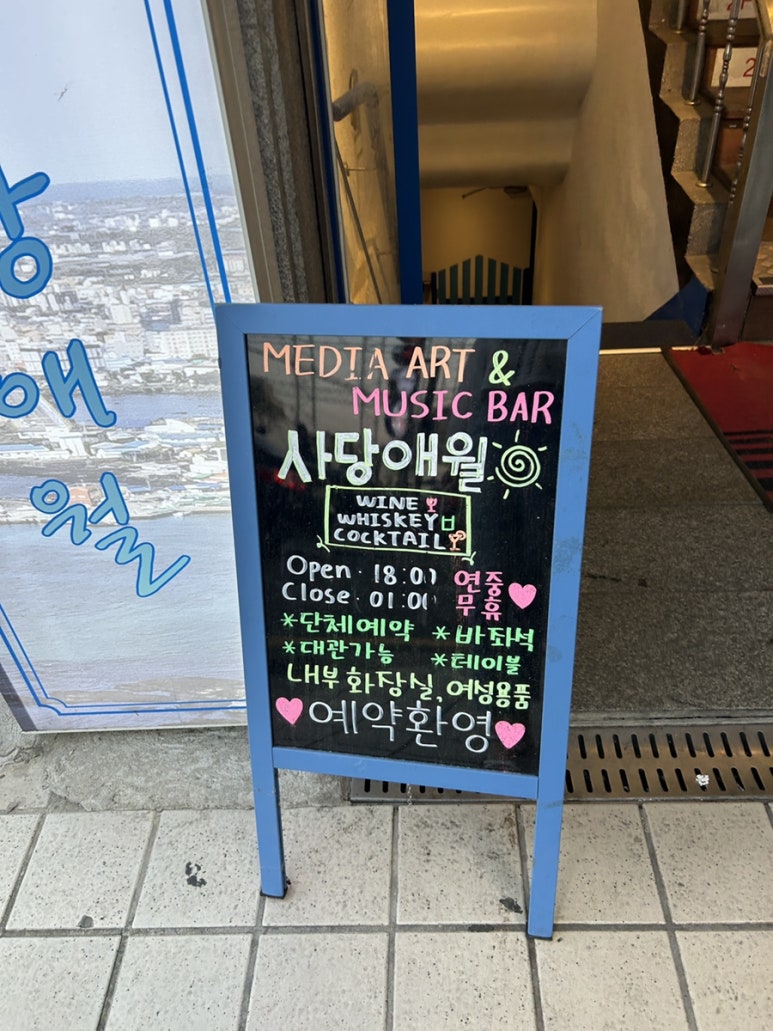 당
애
월
MEDIA ART &
MUSIC BAR
사당애월
WINE
WHISKEY
COCKTAIL
Open · 18:00 연중
Close · 01:00 무휴
*단체예약 *바좌석
*대관가능 *테이블
내부화장실, 여성용품
예약환영